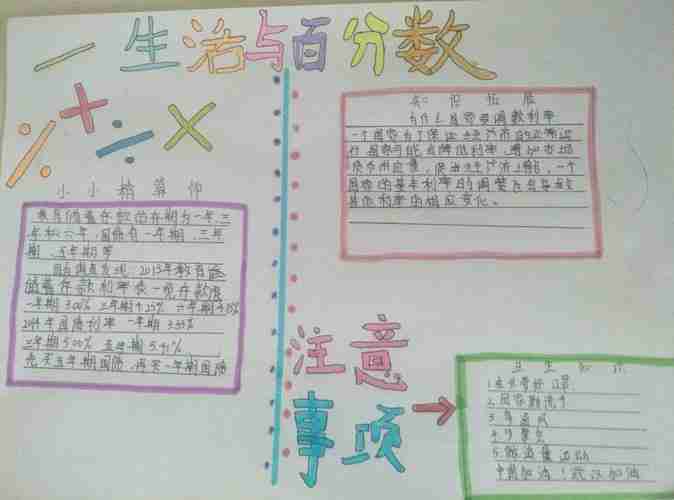 生活与百分数
小小精算师
教育储蓄存款的存期为一年、三
年和六年,国债有一年期、三年
期、五年期等
2013年教育
储蓄存款利率
一年期3.00% 三年期4.25% 六年期4.75%
2014年国债利率 一年期 3.55%
三年期5.00% 五年期5.41%
先买五年期国债,再买一年期国债
知识拓展
为什么国家要调整利率
一个国家为了保证经济市的正常运
行,国家可能会降低利率,增加市场
货币供应量,促进经济增长,一个
国家的基本利率的调整会导致
其他利率的相应变化。
注意
事项
卫生知识
1.
2.回家勤洗手
3.多通风
4.少聚会
5.做适量运动
中国加油!武汉加油